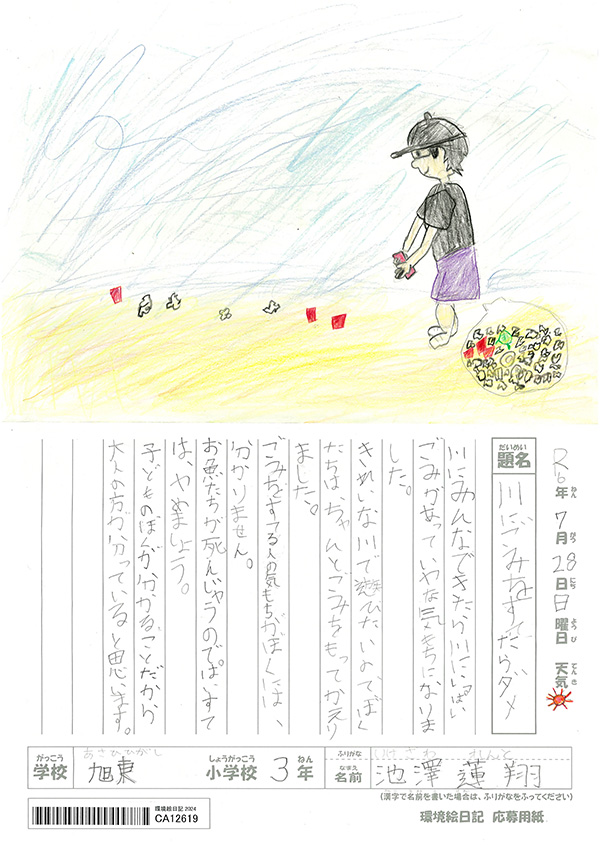 R6年 7月 28日 日曜日 天気
ねん がつ にち ようび てんき
だいめい
題名
川にごみをすてたらダメ
川にみんなできたら川にいっぱい
ごみがあっていやな気もちになりま
した。
きれいな川で遊びたいので、ぼく
たちは、ちゃんとごみをもってかえり
ました。
ごみをすてる人の気もちがぼくには、
分かりません。
お魚たちが死んじゃうのでぽいすて
は、やめましょう。
子どものぼくが分かることだから
大人の方が分っていると思います。
がっこう
学校
あさひひがし
旭東
しょうがっこう
小学校
3
ねん
年
ふりがな
いけざわ れんと
なまえ
名前
池澤蓮翔
(漢字で名前を書いた場合は、ふりがなをふってください)
環境絵日記 2024
CA12619
環境絵日記 応募用紙